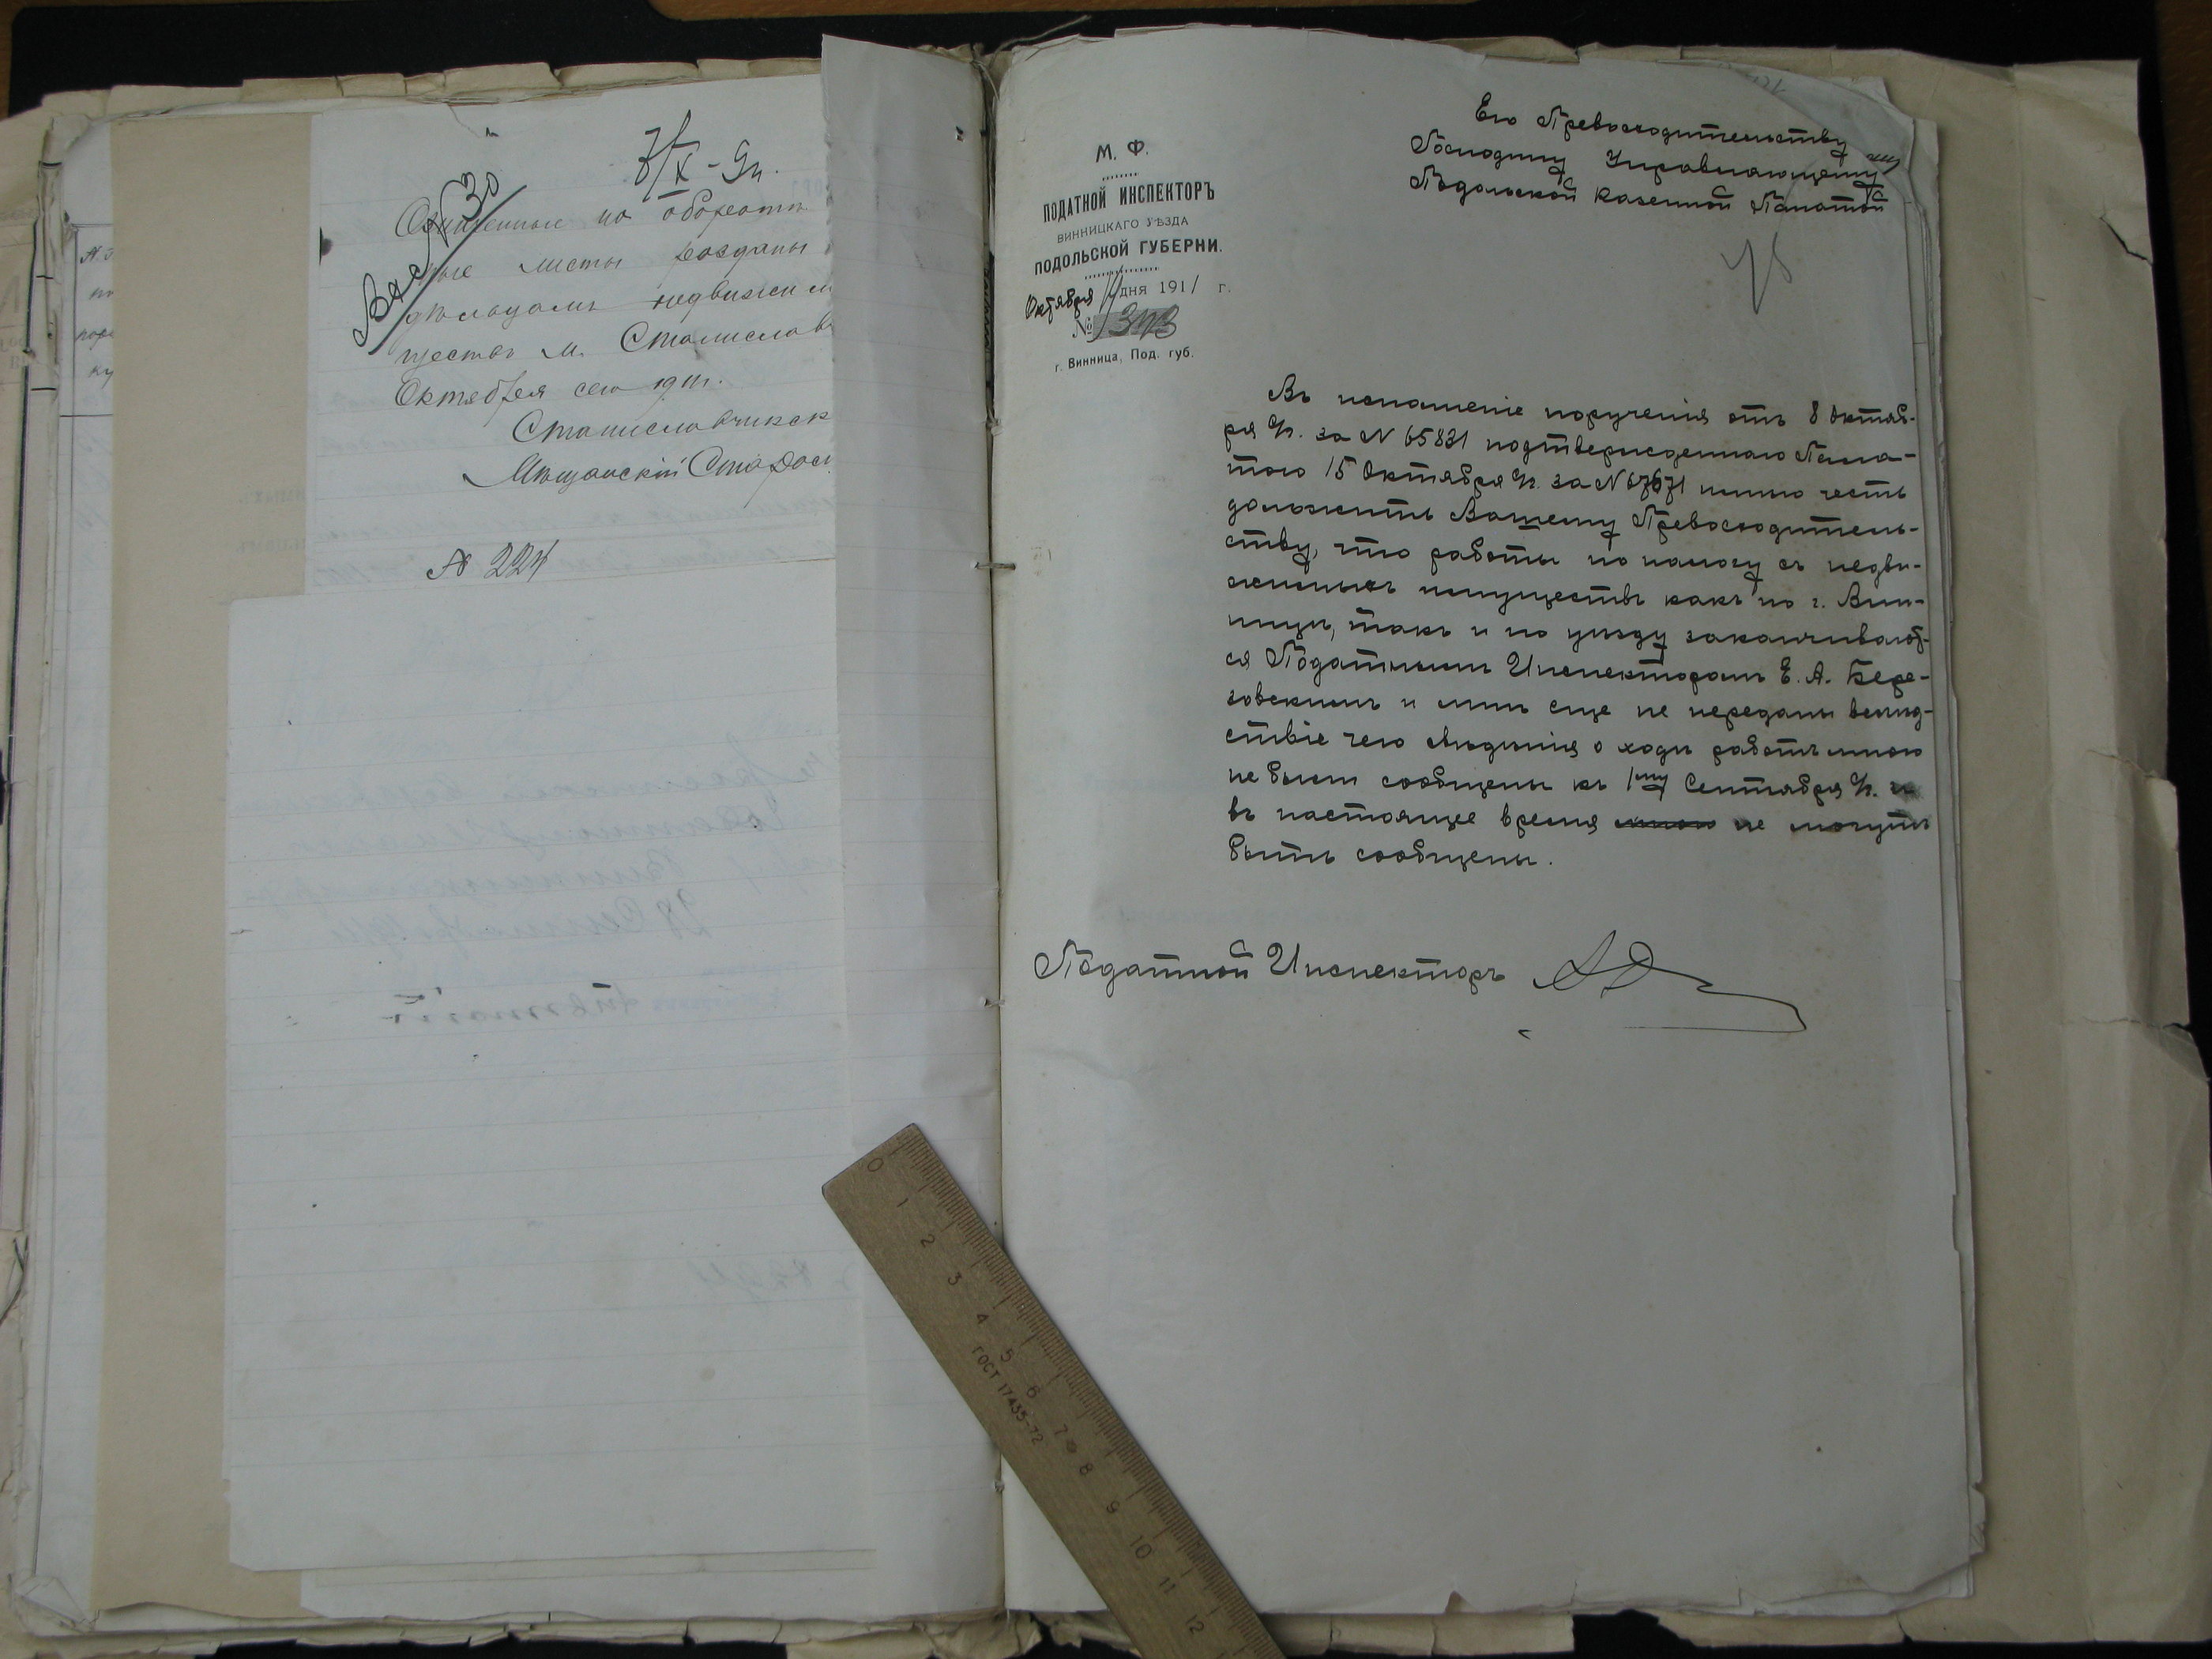 7/X - 9 ч.
№ 30
на обороте
листы розданы
недвижим
ществ м. Станислав
Октября сего 1911 г.
Станиславчикск
Мѣщанскій Старос
№ 224
М. Ф.
ПОДАТНОЙ ИНСПЕКТОРЪ
ВИННИЦКАГО УѢЗДА
ПОДОЛЬСКОЙ ГУБЕРНИ.
Октября дня 1911 г.
№ 1343
г. Винница, Под. губ.
Его Превосходительству
Господину Управляющему
Подольской Казенной Палатой
Въ исполненіе порученія отъ 8 Октяб-
ря за № 65831 подтвержденнаго Пала-
тою 15 Октября за № 67671 имѣю честь
доложить Вашему Превосходитель-
ству, что работы по налогу съ недви-
жимыхъ имуществъ какъ по г. Вин-
ницѣ, такъ и по уѣзду заканчивают-
ся Податнымъ Инспекторомъ Е. А. Бере-
зовскимъ и мнѣ еще не переданы вслѣд-
ствіе чего свѣдѣнія о ходѣ работъ мною
не были сообщены къ 1му Сентября
въ настоящее время мною не могутъ
быть сообщены.
Податной Инспекторъ
0 1 2 3 4 5 6 7 8 9 10 11 12
ГОСТ 17435-72